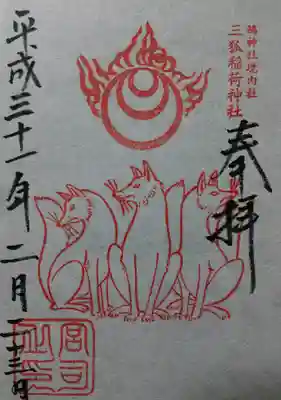 鴻神社境内社
三狐稲荷神社
奉拝
平成三十一年二月二十三日
宮司
之印